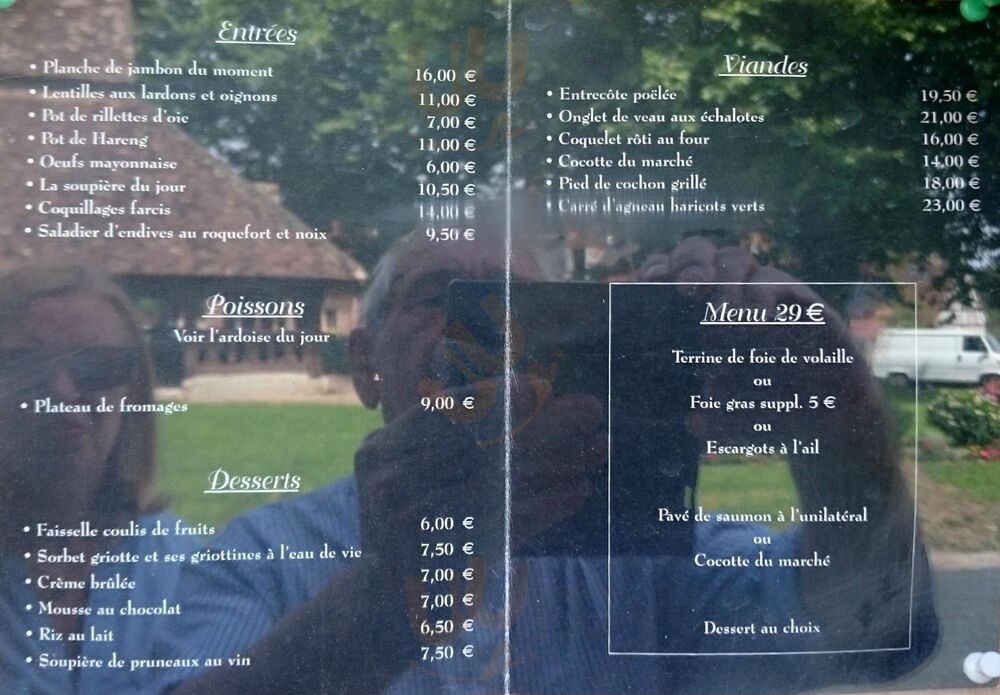 Entrées
• Planche de jambon du moment 16,00 €
• Lentilles aux lardons et oignons 11,00 €
• Pot de rillettes d'oie 7,00 €
• Pot de Hareng 11,00 €
• Oeufs mayonnaise 6,00 €
• La soupière du jour 10,50 €
• Coquillages farcis 14,00 €
• Saladier d'endives au roquefort et noix 9,50 €
Poissons
Voir l'ardoise du jour
• Plateau de fromages 9,00 €
Desserts
• Faisselle coulis de fruits 6,00 €
• Sorbet griotte et ses griottines à l'eau de vie 7,50 €
• Crème brûlée 7,00 €
• Mousse au chocolat 7,00 €
• Riz au lait 6,50 €
• Soupière de pruneaux au vin 7,50 €
Viandes
• Entrecôte poëlée 19,50 €
• Onglet de veau aux échalotes 21,00 €
• Coquelet rôti au four 16,00 €
• Cocotte du marché 14,00 €
• Pied de cochon grillé 18,00 €
• Carré d'agneau haricots verts 23,00 €
Menu 29 €
Terrine de foie de volaille
ou
Foie gras suppl. 5 €
ou
Escargots à l'ail
Pavé de saumon à l'unilatéral
ou
Cocotte du marché
Dessert au choix